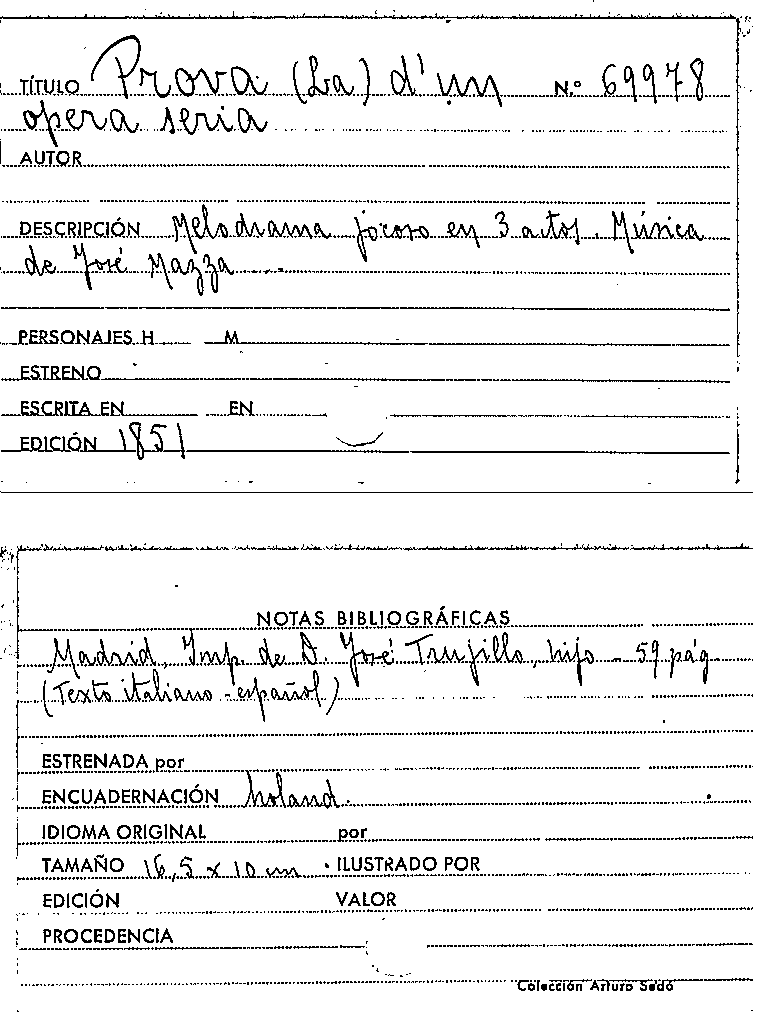 TÍTULO Prova (La) d'un N.º 69978
opera seria
AUTOR
DESCRIPCIÓN Melodrama jocoso en 3 actos. Música
de José Mazza
PERSONAJES H M
ESTRENO
ESCRITA EN EN
EDICIÓN 1851
NOTAS BIBLIOGRÁFICAS
Madrid, Imp. de D. José Trujillo, hijo - 59 pág
(Texto italiano - español)
ESTRENADA por
ENCUADERNACIÓN holand.
IDIOMA ORIGINAL por
TAMAÑO 16,5 x 10 cm ILUSTRADO POR
EDICIÓN VALOR
PROCEDENCIA
Colección Arturo Sedó